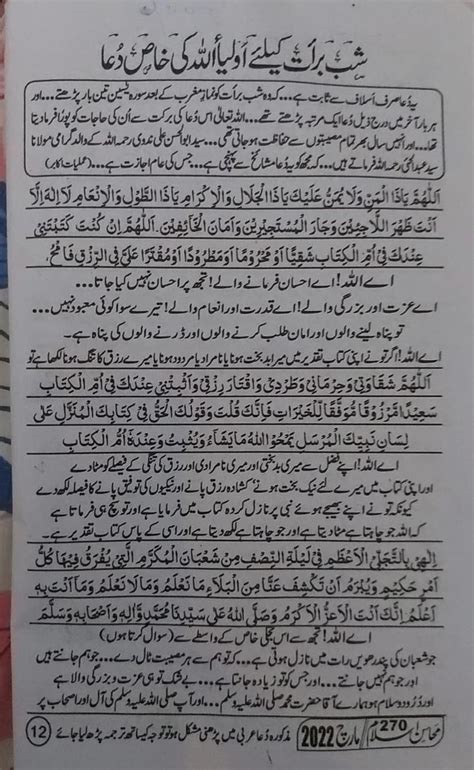 شب برأت کیلئے أولیأ اللہ کی خاص دُعا
یہ دُعا صرف اَسلاف سے ثابت ہے... کہ وہ شب برأت کو نمازِ مغرب کے بعد سورہ یٰسین تین بار پڑھتے... اور
ہر بار آخر میں درج ذیل دُعا ایک مرتبہ پڑھتے تھے... اللہ تعالیٰ اس دُعا کی برکت سے ان کی حاجات کو پورا فرما دیتا
تھا... اور انہیں سال بھر تمام مصیبتوں سے حفاظت ہو جاتی تھی... سید ابوالحسن علی ندوی رحمہ اللہ کے والد گرامی مولانا
سید عبدالحئی رحمہ اللہ فرماتے ہیں... کہ مجھ کو یہ دُعا مشائخ سے پہنچی ہے... جس کی عام اجازت ہے... (عملیات کابر)
اَللّٰهُمَّ يَاذَا الْمَنِّ وَلَا يُمَنُّ عَلَيْكَ يَاذَا الْجَلَالِ وَالْاِكْرَامِ يَاذَا الطَّوْلِ وَالْاِنْعَامِ لَا اِلٰهَ اِلَّا
اَنْتَ ظَهْرَ اللَّاجِئِيْنَ وَجَارَ الْمُسْتَجِيْرِيْنَ وَاَمَانَ الْخَائِفِيْنَ. اَللّٰهُمَّ اِنْ كُنْتَ كَتَبْتَنِيْ
عِنْدَكَ فِيْ اُمِّ الْكِتَابِ شَقِيًّا اَوْ مَحْرُوْمًا اَوْ مَطْرُوْدًا اَوْ مُقْتَرًا عَلَيَّ فِي الرِّزْقِ فَامْحُ
اے اللہ! اے احسان فرمانے والے! تجھ پر احسان نہیں کیا جاتا...
اے عزت اور بزرگی والے! اے قدرت اور انعام والے! تیرے سوا کوئی معبود نہیں...
تو پناہ لینے والوں اور امان طلب کرنے والوں اور ڈرنے والوں کی پناہ ہے...
اے اللہ! اگر تو نے اپنی کتاب تقدیر میں میرا بد بخت ہونا یا نامراد یا مردود ہونا یا میرے رزق کا تنگ ہونا لکھا ہے تو
اَللّٰهُمَّ شَقَاوَتِيْ وَحِرْمَانِيْ وَطَرْدِيْ وَاقْتِتَارَ رِزْقِيْ وَاَثْبِتْنِيْ عِنْدَكَ فِيْ اُمِّ الْكِتَابِ
سَعِيْدًا مَّرْزُوْقًا مُّوَفَّقًا لِّلْخَيْرَاتِ فَاِنَّكَ قُلْتَ وَقَوْلُكَ الْحَقُّ فِيْ كِتَابِكَ الْمُنَزَّلِ عَلٰى
لِسَانِ نَبِيِّكَ الْمُرْسَلِ يَمْحُوا اللّٰهُ مَا يَشَآءُ وَيُثْبِتُ وَعِنْدَهٗ اُمُّ الْكِتَابِ
اے اللہ! اپنے فضل سے میری بدبختی اور میری نامرادی اور رزق کی تنگی کے فیصلے کو مٹا دے
اور اپنی کتاب میں میرے لئے نیک بخت ہونے، کشادہ رزق پانے اور نیکیوں کی توفیق پانے کا فیصلہ لکھ دے
کیونکہ تو نے اپنے بھیجے ہوئے نبی پر نازل کردہ کتاب میں فرمایا ہے اور تو سچ ہی فرماتا ہے
کہ اللہ جو چاہتا ہے مٹا دیتا ہے اور جو چاہتا ہے لکھ دیتا ہے اور اسی کے پاس کتاب تقدیر ہے۔
اِلٰهِيْ بِالتَّجَلِّي الْاَعْظَمِ فِيْ لَيْلَةِ النِّصْفِ مِنْ شَعْبَانَ الْمُكَرَّمِ الَّتِيْ يُفْرَقُ فِيْهَا كُلُّ
اَمْرٍ حَكِيْمٍ وَّيُبْرَمُ اَنْ تَكْشِفَ عَنَّا مِنَ الْبَلَآءِ مَا نَعْلَمُ وَمَا لَا نَعْلَمُ وَمَا اَنْتَ بِهٖ
اَعْلَمُ اِنَّكَ اَنْتَ الْاَعَزُّ الْاَكْرَمُ وَصَلَّى اللّٰهُ عَلٰى سَيِّدِنَا مُحَمَّدٍ وَّاٰلِهٖ وَاَصْحَابِهٖ وَسَلَّمَ
اے اللہ! تجھ سے اس تجلی خاص کے واسطے سے (سوال کرتا ہوں)
جو شعبان کی پندرھویں رات میں نازل ہوتی ہے... کہ تو ہم سے مصیبت ٹال دے... جو ہم جانتے
ہیں... اور جو ہم نہیں جانتے... جس کو تو زیادہ جانتا ہے... بے شک تو ہی عزت و بزرگی والا ہے
اور دُرود و سلام ہو ہمارے آقا حضرت محمد صلی اللہ علیہ وسلم پر... اور آپ صلی اللہ علیہ وسلم کی آل اور اصحاب پر
محاسن اسلام 270 / مارچ 2022 مذکورہ دُعا عربی میں پڑھنی مشکل ہو تو توجہ کیساتھ ترجمہ پڑھ لیا جائے 12